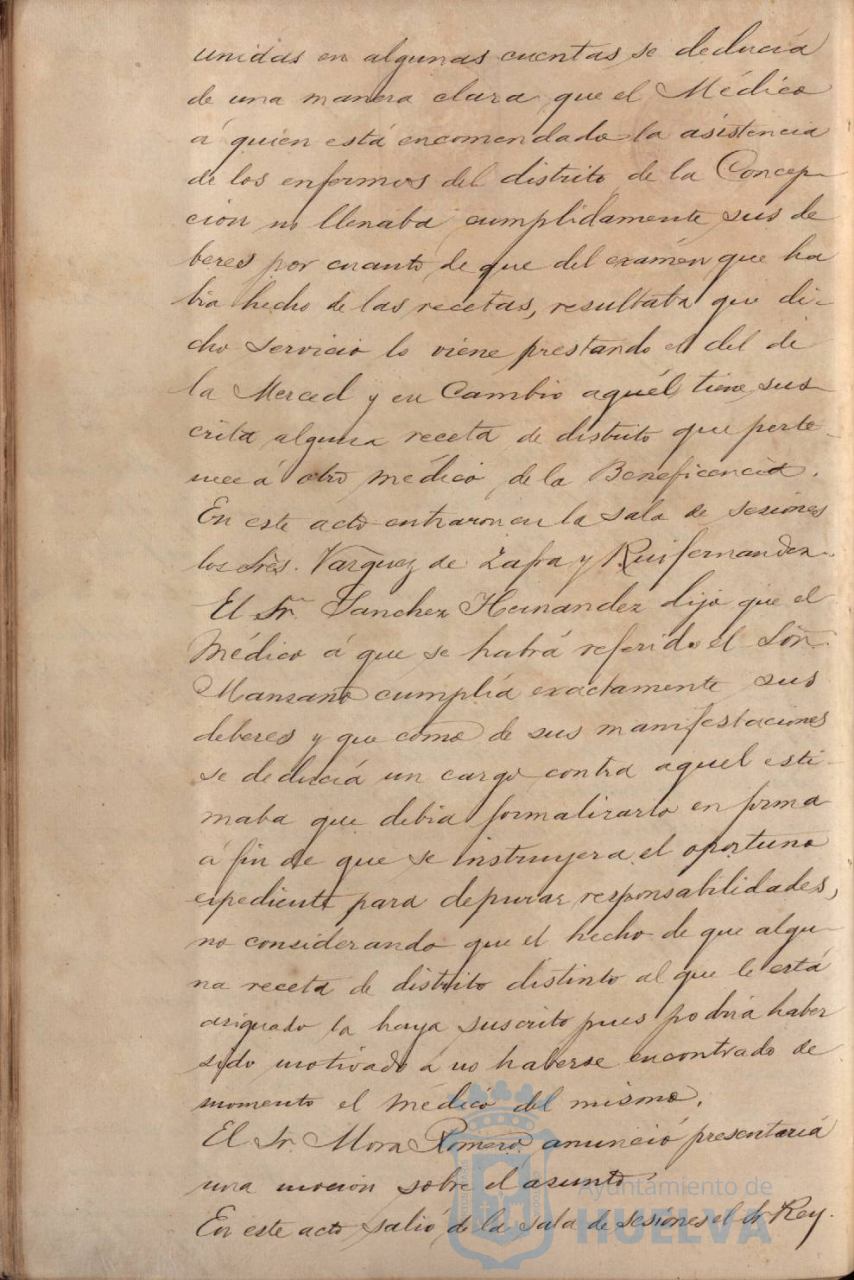 unidas en algunas cuentas, se deducia
de una manera clara que el Médico
á quien está encomendada la asistencia
de los enfermos del distrito de la Concep-
cion no llenaba cumplidamente sus de
beres por cuanto de que del exámen que ha
bia hecho de las recetas, resultaba que di-
cho servicio lo viene prestando el del de
la Merced y en cambio aquél tiene sus-
crita alguna receta de distrito que perte-
nece á otro médico de la Beneficencia.
En este acto entraron en la sala de sesiones
los Sres. Vazquez de Zafra y Ruifernandez.
El Sr. Sanchez Hernandez dijo que el
Médico á que se habrá referido el Señr.
Manzano cumplía exactamente sus
deberes y que como de sus manifestaciones
se deducia un cargo contra aquel esti-
maba que debia formalizarlo en forma
á fin de que se instruyera el oportuno
expediente para depurar responsabilidades,
no considerando que el hecho de que algu-
na receta de distrito distinto al que le está
asignado la haya suscrito pues podria haber
sido motivado á no haberse encontrado de
momento el médico del mismo.
El Sr. Mora Romero anunció presentaria
una mocion sobre el asunto.
En este acto salió de la sala de sesiones el Sr. Rey.
Ayuntamiento de
HUELVA